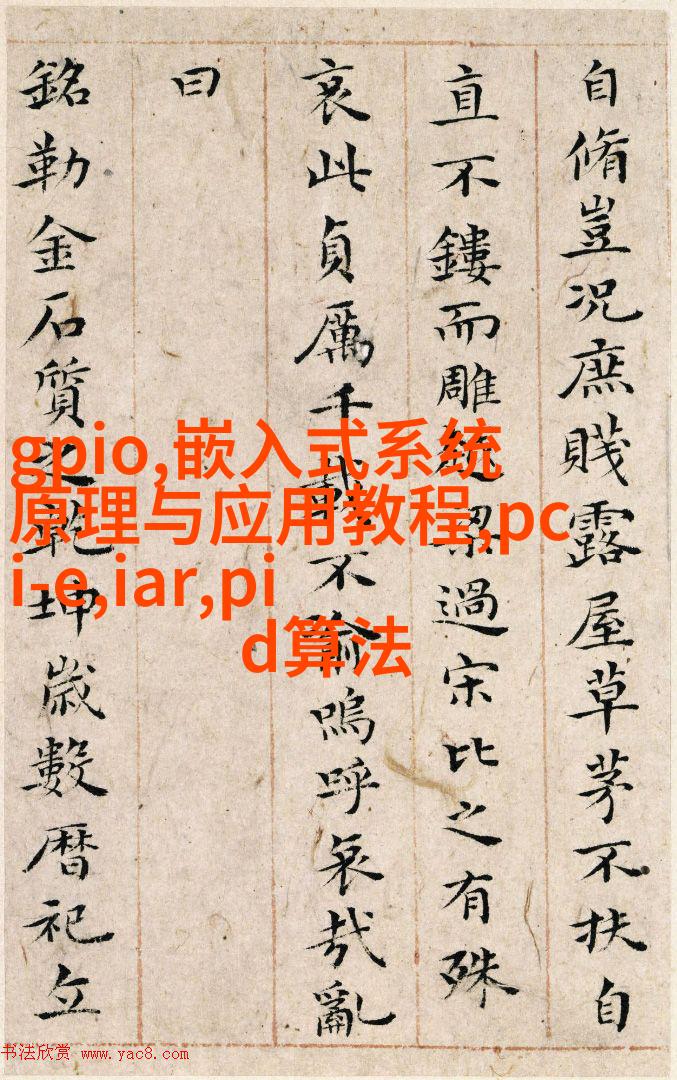 自脩豈況庶賤露屋草茅不扶自
直不鏤而雕梁過宋比之有殊
哀此貞厲千載不渝嗚呼哀哉亂
曰
銘勒金石質之乾坤歲數曆祀立
gpio,嵌入式系统
原理与应用教程,pc
i-e,iar,pi
d算法
书法欣赏 www.yac8.com